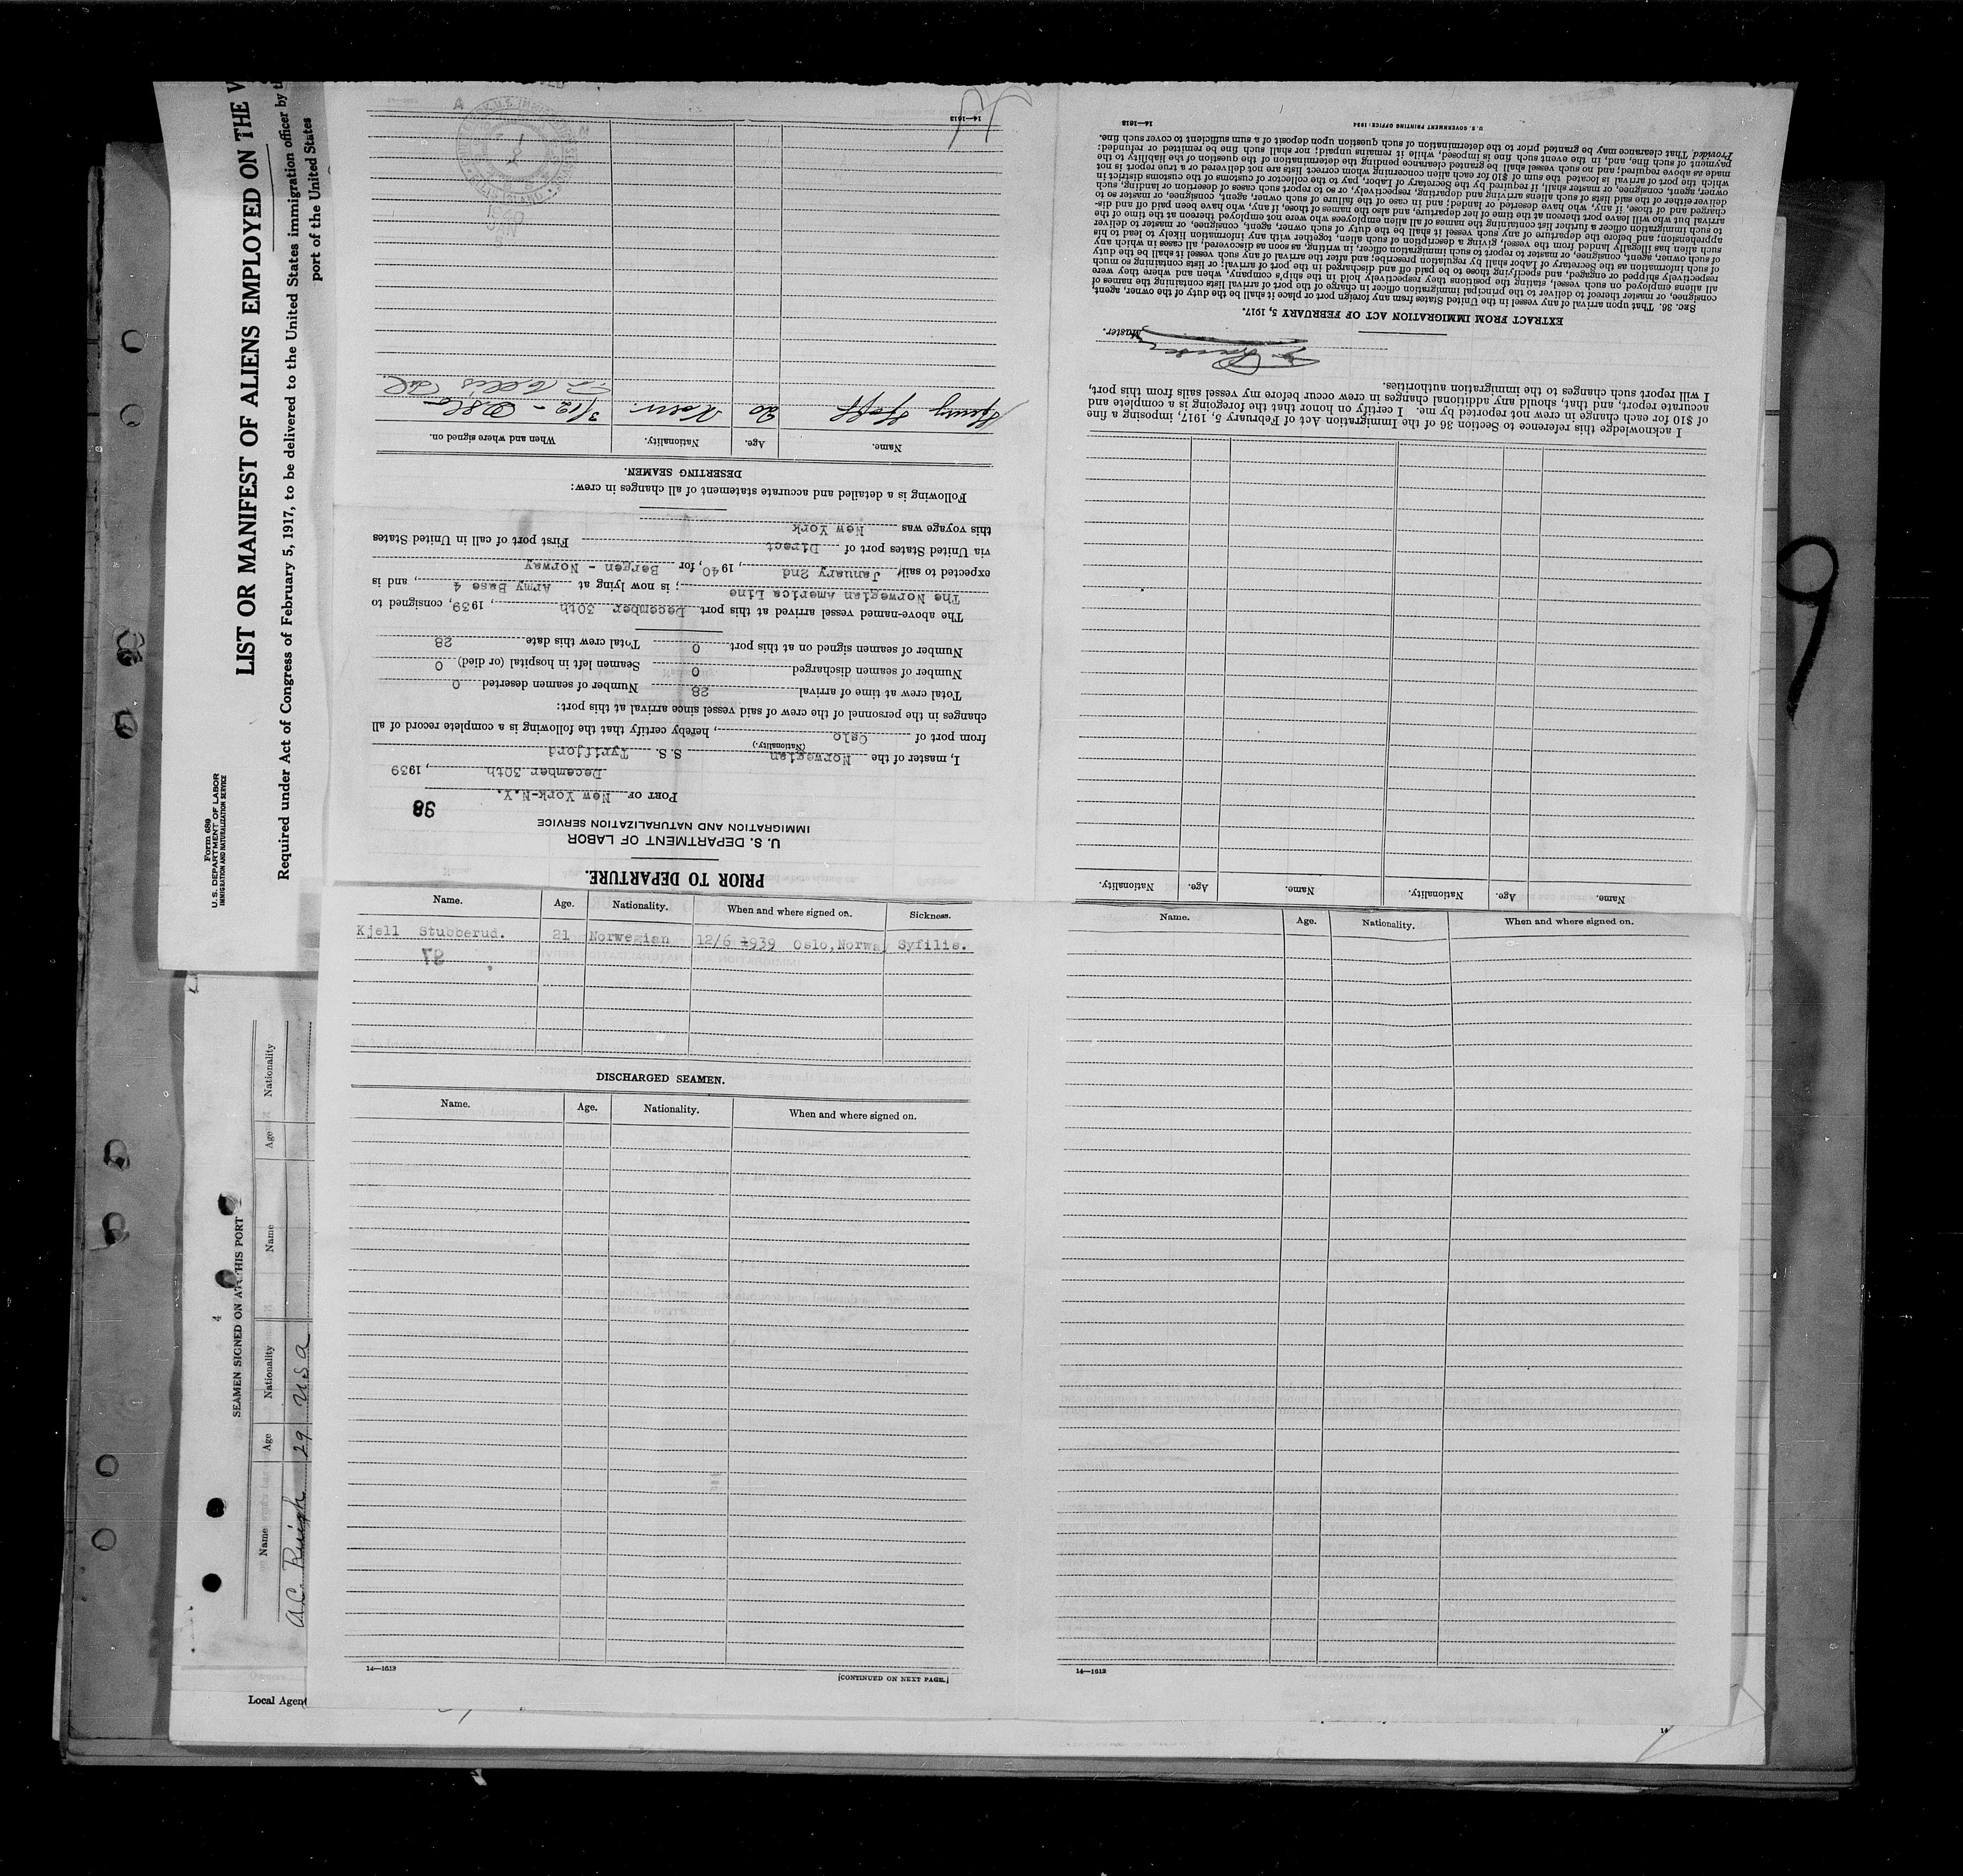 LIST OR MANIFEST OF ALIENS EMPLOYED ON THE V
Required under Act of Congress of February 5, 1917, to be delivered to the United States immigration officer by t
port of the United States
Form 680
U. S. DEPARTMENT OF LABOR
IMMIGRATION AND NATURALIZATION SERVICE
4
SEAMEN SIGNED ON AT THIS PORT
Name Age Nationality Name Age Nationality
A.C. 29 USA
Local Agent
PRIOR TO DEPARTURE.
U. S. DEPARTMENT OF LABOR
IMMIGRATION AND NATURALIZATION SERVICE
98
PORT OF New York-N.Y.
December 30th, 1939
I, master of the Norwegian S. S. Tyrifjord
(Nationality.)
from port of Oslo, hereby certify that the following is a complete record of all
changes in the personnel of the crew of said vessel since arrival at this port:
Total crew at time of arrival 28 Number of seamen deserted 0
Number of seamen discharged 0 Seamen left in hospital (or died) 0
Number of seamen signed on at this port 0 Total crew this date 28
The above-named vessel arrived at this port December 30th, 1939, consigned to
The Norwegian America Line; is now lying at Army Base 4, and is
expected to sail January 2nd, 1940, for Bergen - Norway
via United States port of Direct First port of call in United States
this voyage was New York
Following is a detailed and accurate statement of all changes in crew:
DESERTING SEAMEN.
Name. Age. Nationality. When and where signed on.
20 Norw. 3/12 - Oslo
14—1613
Name. Age. Nationality. Name. Age. Nationality.
I acknowledge this reference to Section 36 of the Immigration Act of February 5, 1917, imposing a fine
of $10 for each change in crew not reported by me. I certify on honor that the foregoing is a complete and
accurate report, and that, should any additional changes in crew occur before my vessel sails from this port,
I will report such changes to the immigration authorities.
Master.
EXTRACT FROM IMMIGRATION ACT OF FEBRUARY 5, 1917.
SEC. 36. That upon arrival of any vessel in the United States from any foreign port or place it shall be the duty of the owner, agent,
consignee, or master thereof to deliver to the principal immigration officer in charge of the port of arrival lists containing the names of
all aliens employed on such vessel, stating the positions they respectively hold in the ship's company, when and where they were
respectively shipped or engaged, and specifying those to be paid off and discharged in the port of arrival; or lists containing so much
of such information as the Secretary of Labor shall by regulation prescribe; and after the arrival of any such vessel it shall be the duty
of such owner, agent, consignee, or master to report to such immigration officer, in writing, as soon as discovered, all cases in which any
such alien has illegally landed from the vessel, giving a description of such alien, together with any information likely to lead to his
apprehension; and before the departure of any such vessel it shall be the duty of such owner, agent, consignee, or master to deliver
to such immigration officer a further list containing the names of all alien employees who were not employed thereon at the time of the
arrival but who will leave port thereon at the time of her departure, and also the names of those, if any, who have been paid off and dis-
charged and of those, if any, who have deserted or landed; and in case of the failure of such owner, agent, consignee, or master so to
deliver either of the said lists of such aliens arriving and departing, respectively, or so to report such cases of desertion or landing, such
owner, agent, consignee, or master shall, if required by the Secretary of Labor, pay to the collector of customs of the customs district in
which the port of arrival is located the sum of $10 for each alien concerning whom correct lists are not delivered or a true report is not
made as above required; and no such vessel shall be granted clearance pending the determination of the question of the liability to the
payment of such fine, and, in the event such fine is imposed, while it remains unpaid; nor shall such fine be remitted or refunded:
Provided, That clearance may be granted prior to the determination of such question upon deposit of a sum sufficient to cover such fine.
14—1613 U. S. GOVERNMENT PRINTING OFFICE: 1934
Name. Age. Nationality. When and where signed on. Sickness.
Kjell Stubberud. 21 Norwegian 12/6 1939 Oslo,Norway Syfilis.
97
DISCHARGED SEAMEN.
Name. Age. Nationality. When and where signed on.
14—1613
[CONTINUED ON NEXT PAGE.]
Name. Age. Nationality. When and where signed on.
14—1613
9
14